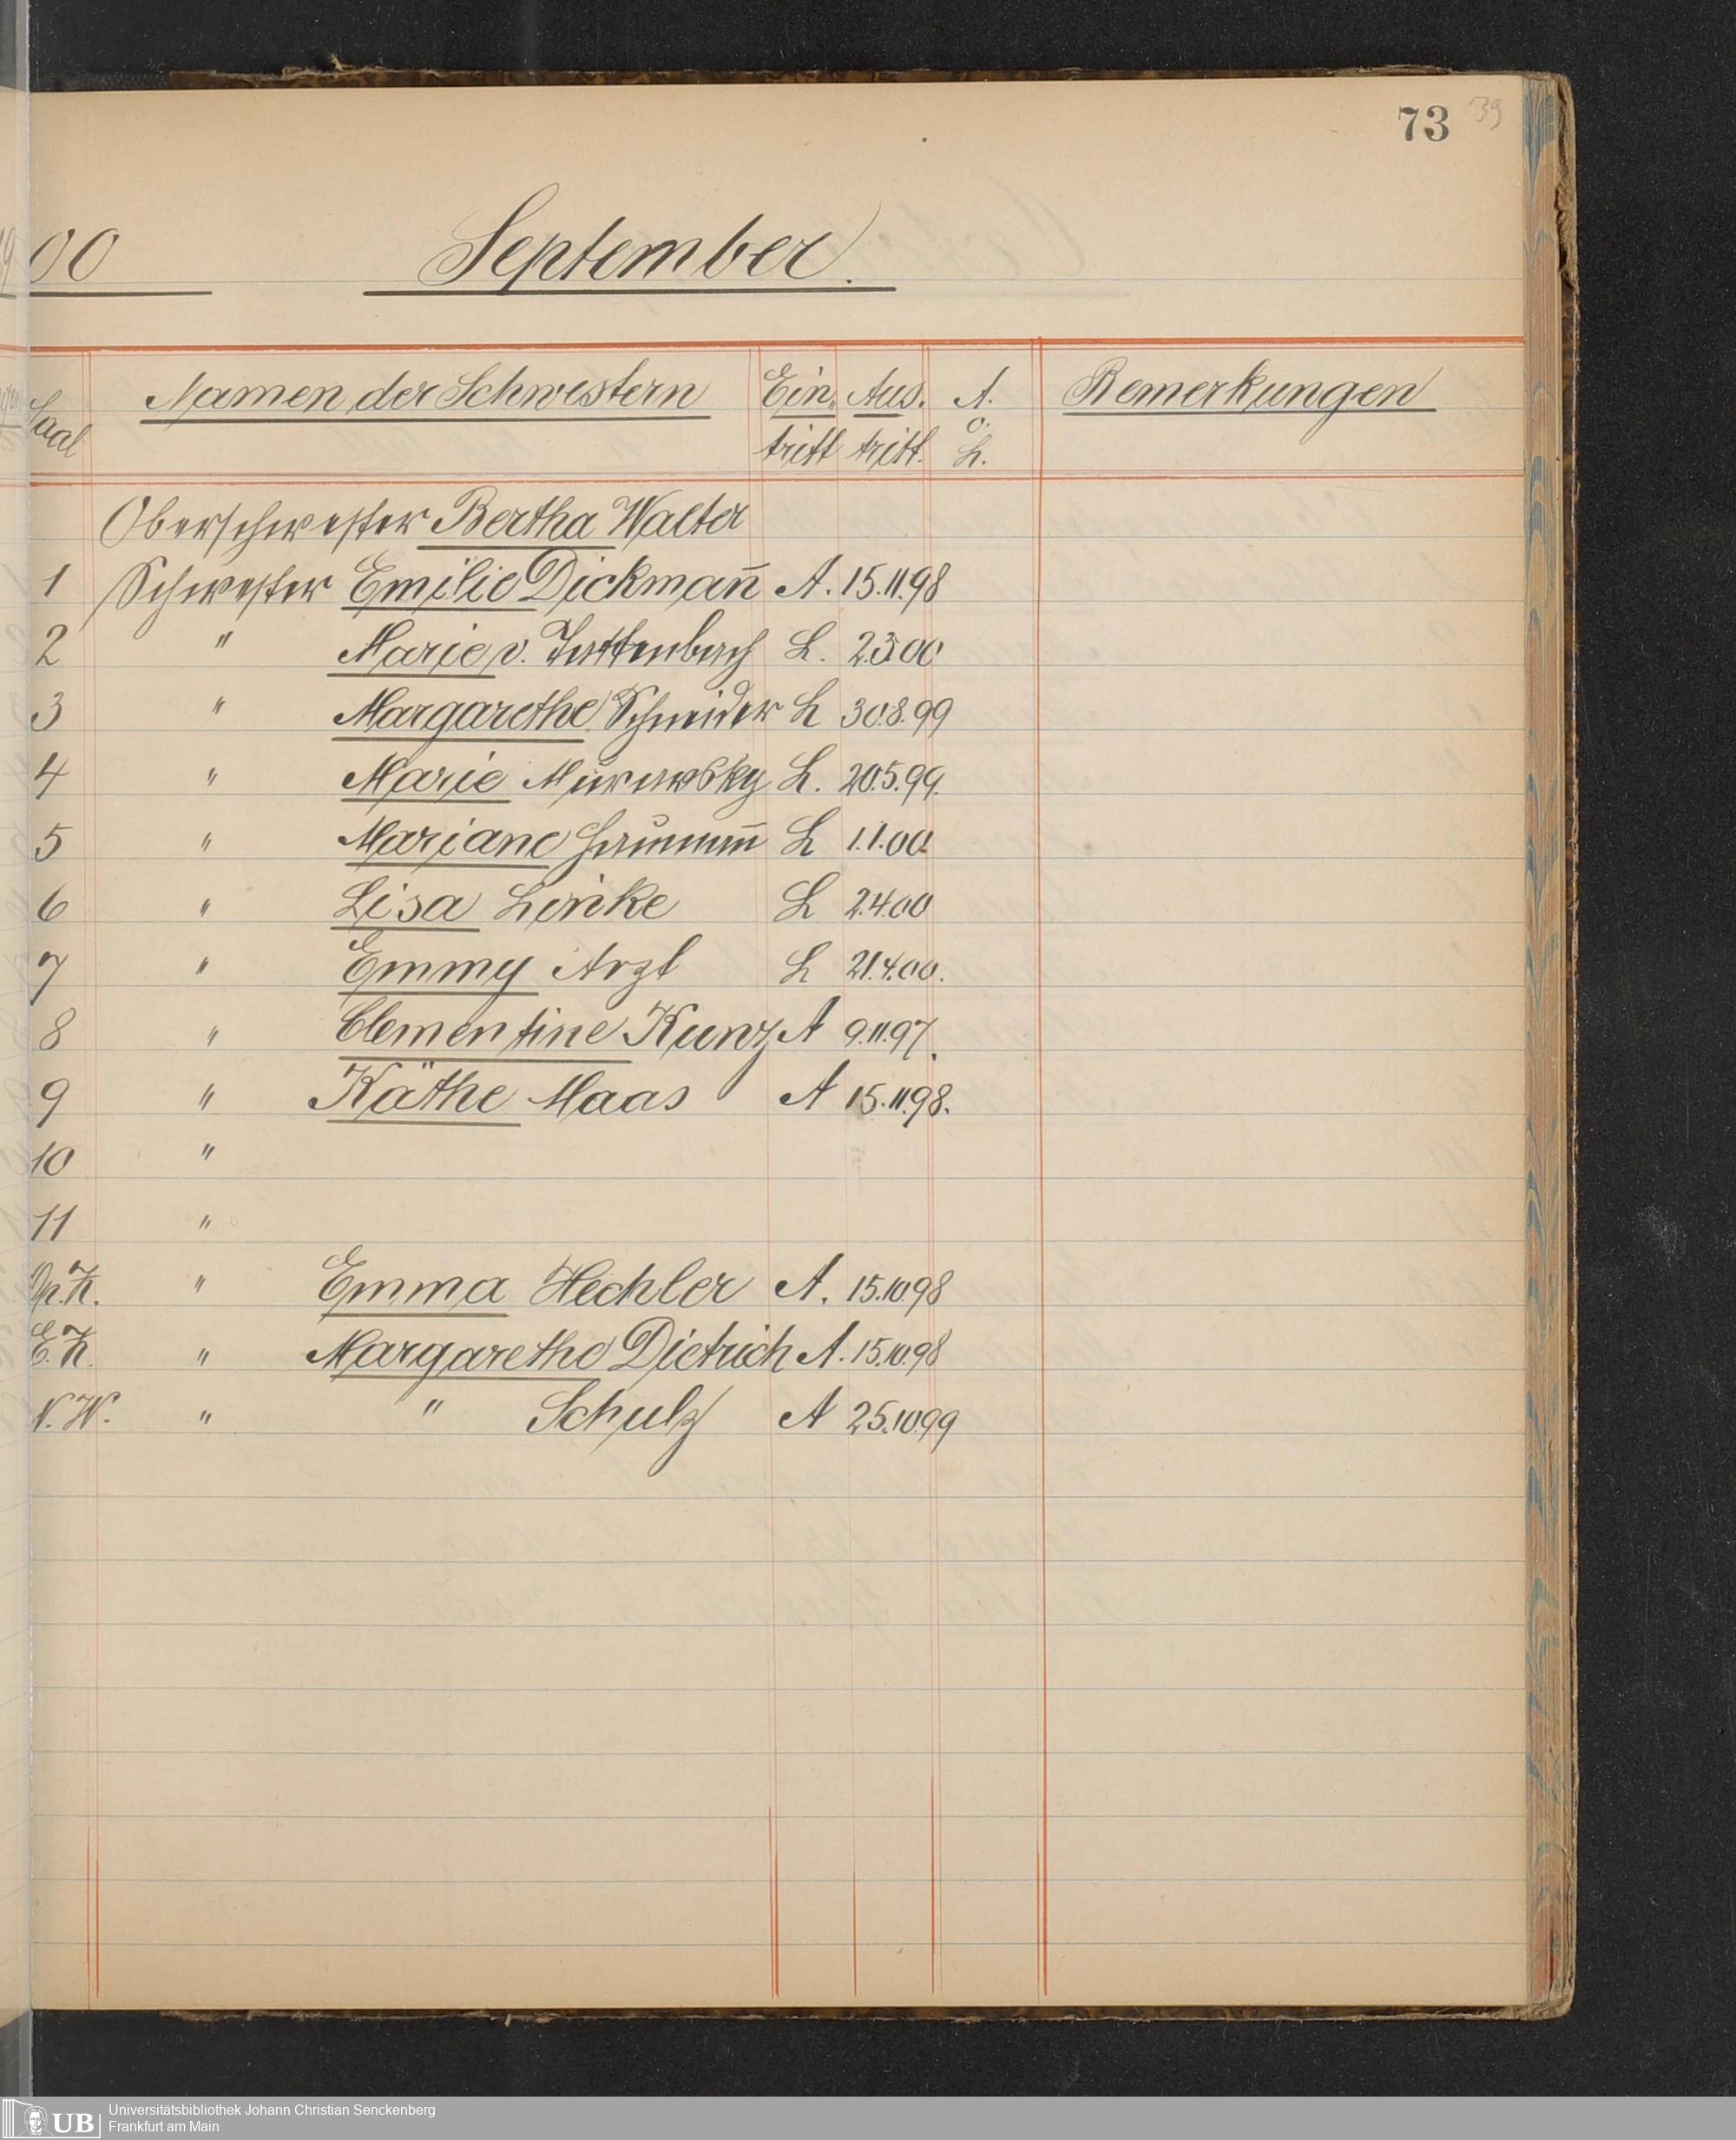 73 39
00 September.
Saal Namen der Schwestern Ein, Aus. A. Bemerkungen
o.
tritt tritt. L.
Oberschwester Bertha Walter
1 Schwester Emilie Dickmañ A. 15.11.98
2 " Marie v. Tattenbach L. 2.3.00
3 " Margarethe Schneider L 30.8.99
4 " Marie Murawsky L. 20.5.99.
5 " Mariane L 1.1.00.
6 " Lisa Linke L 2.4.00
7 " Emmy Arzt L 21.4.00.
8 " Clementine Kunz A 9.11.97.
9 " Käthe Maas A 15.11.98.
10 "
11 "
Op. Z. " Emma Hechler A. 15.10.98
E. Z. " Margarethe Dietrich A. 15.10.98
N. W. " " Schulz A 25.10.99
UB Universitätsbibliothek Johann Christian Senckenberg
Frankfurt am Main